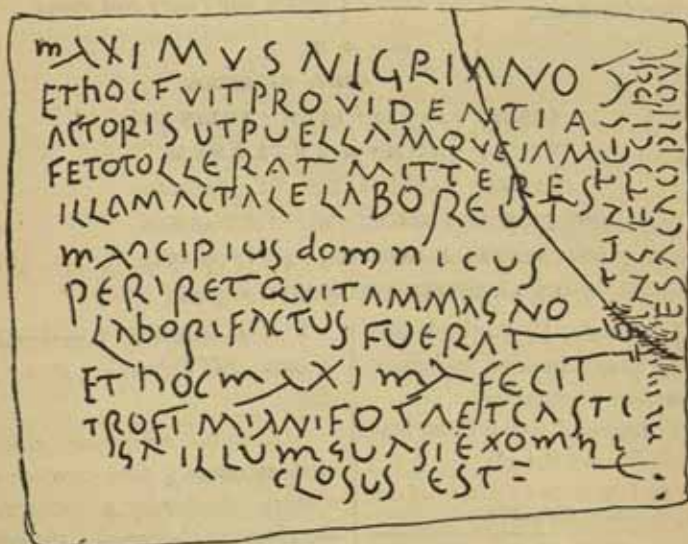 MAXIMVS NIGRIANO
ET HOC FVIT PROVIDENTIA
ACTORIS UT PUELLAM QVE IAM
FETO TOLLERAT MITTERES
ILLAM AC TALE LABORE UT
MANCIPIUS DOMNICUS
PERIRET QVI TAM MAGNO
LABORI FACTUS FUERAT
ET HOC MAXIMA FECIT
TROFIMIANI FOTA ET CASTI
GA ILLUM QUASI EX OMNI
CLOSUS EST =